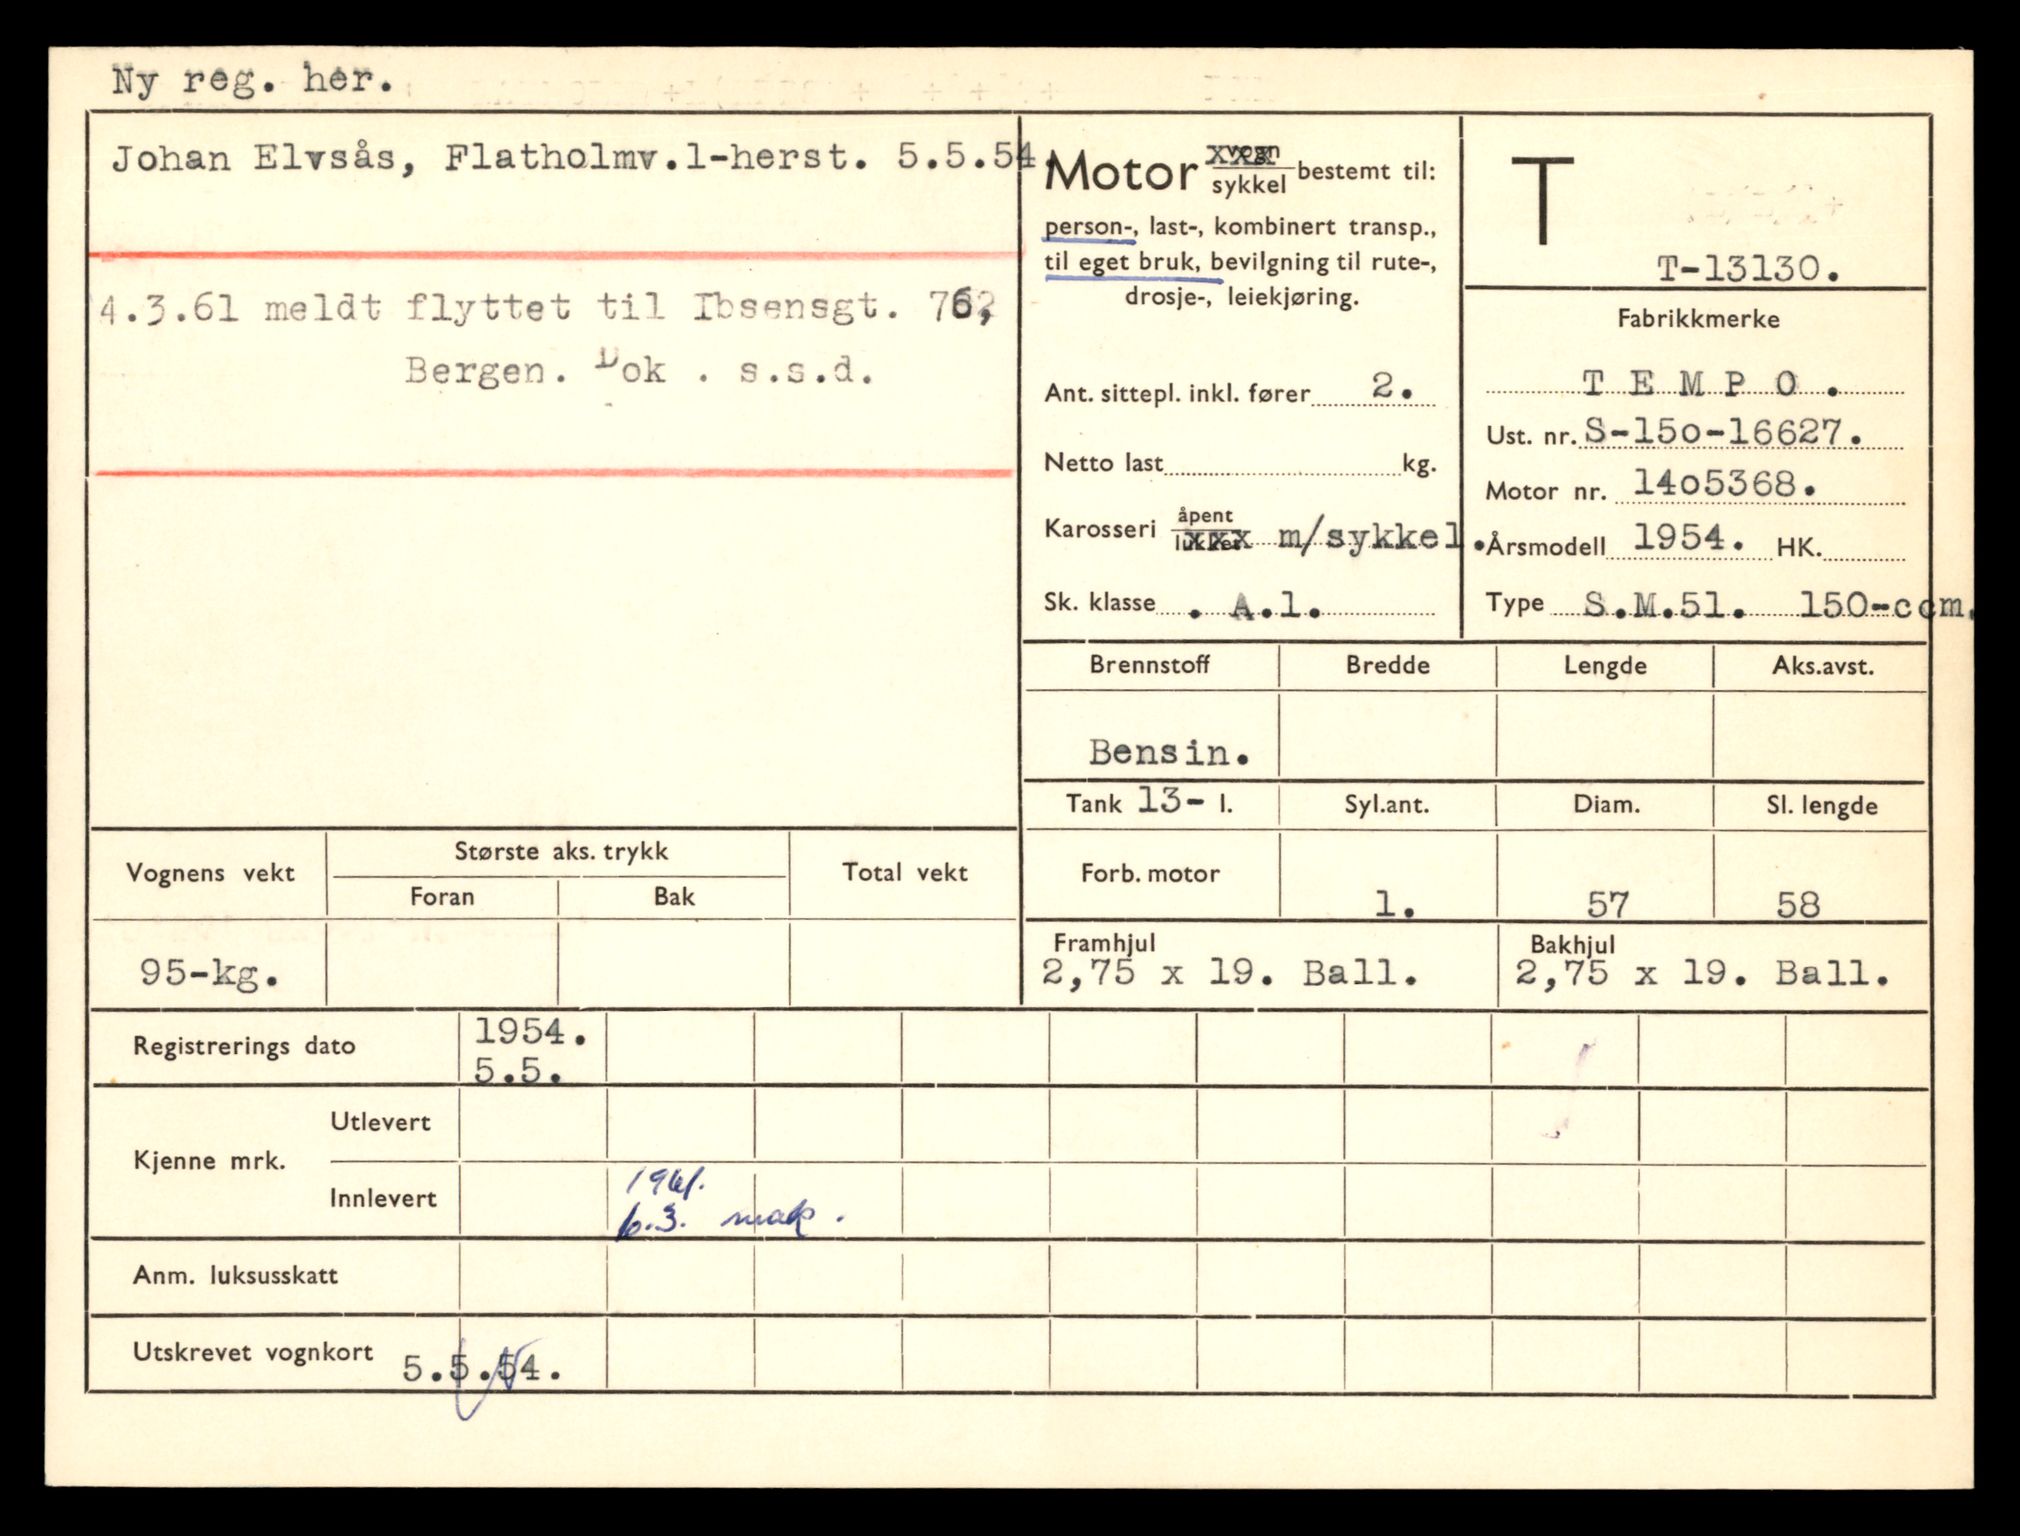 Ny reg. her.
Johan Elvsås, Flatholmv.1-herst. 5.5.54.
4.3.61 meldt flyttet til Ibsensgt.
Bergen. Dok . s.s.d.
Motor vogn/sykkel bestemt til:
person-, last-, kombinert transp.,
til eget bruk, bevilgning til rute-,
drosje-, leiekjøring.
Ant. sittepl. inkl. fører 2.
Netto last kg.
Karosseri åpent/lukket m/sykkel.
Sk. klasse . A.1.
T
T-13130.
Fabrikkmerke
T E M P O .
Ust. nr. S-15o-16627.
Motor nr. 14o5368.
Årsmodell 1954. HK.
Type S.M.51. 150-ccm.
Brennstoff Bredde Lengde Aks.avst.
Bensin.
Tank 13- l. Syl.ant. Diam. Sl. lengde
Forb. motor 1. 57 58
Framhjul Bakhjul
2,75 x 19. Ball. 2,75 x 19. Ball.
Vognens vekt Største aks. trykk Total vekt
Foran Bak
95-kg.
Registrerings dato 1954.
5.5.
Kjenne mrk. Utlevert
Innlevert 1961.
6.3. mak.
Anm. luksusskatt
Utskrevet vognkort 5.5.54.